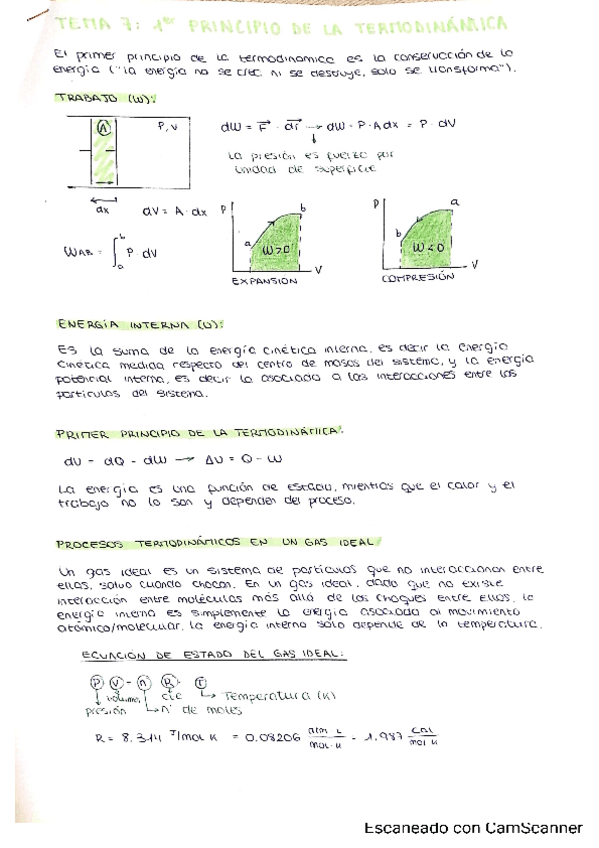 TEMA 7: 1er PRINCIPIO DE LA TERMODINÁMICA
El primer principio de la termodinámica es la conservación de la
energía ("la energía no se crea ni se destruye, solo se transforma").
TRABAJO (W):
A P, V
dx dV = A · dx
dW = F · dr → dW = P · A dx = P · dV
La presión es fuerza por
unidad de superficie
WAB = ∫ab P · dV
P a b W>0 V
EXPANSIÓN
P b a W<0 V
COMPRESIÓN
ENERGÍA INTERNA (U):
Es la suma de la energía cinética interna, es decir la energía
cinética medida respecto del centro de masas del sistema, y la energía
potencial interna, es decir la asociada a las interacciones entre las
partículas del sistema.
PRIMER PRINCIPIO DE LA TERMODINÁMICA:
dU = dQ - dW → ΔU = Q - W
La energía es una función de estado, mientras que el calor y el
trabajo no lo son y dependen del proceso.
PROCESOS TERMODINÁMICOS EN UN GAS IDEAL
Un gas ideal es un sistema de partículas que no interaccionan entre
ellas, salvo cuando chocan. En un gas ideal, dado que no existe
interacción entre moléculas más allá de los choques entre ellas, la
energía interna es simplemente la energía asociada al movimiento
atómico/molecular, la energía interna solo depende de la temperatura.
ECUACIÓN DE ESTADO DEL GAS IDEAL:
P V = n R · T
volumen cte → Temperatura (K)
presión → nº de moles
R = 8.314 J/mol K = 0.08206 atm L/mol·K = 1.987 cal/mol K
Escaneado con CamScanner